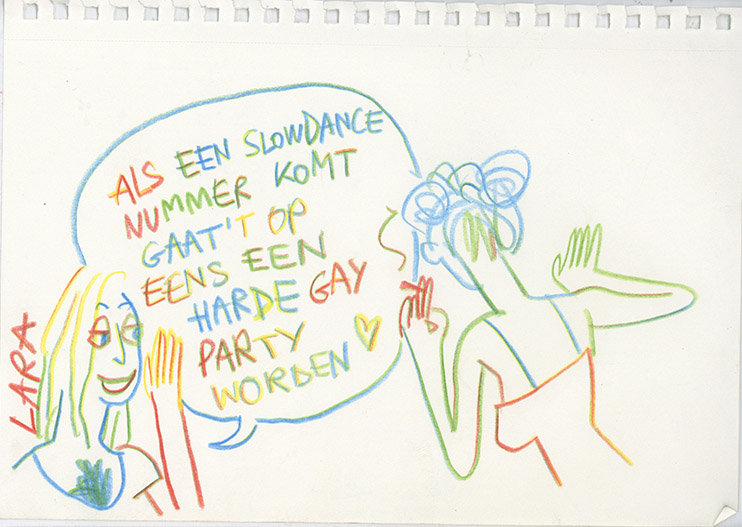 ALS EEN SLOWDANCE
NUMMER KOMT
GAAT'T OP
EENS EEN
HARDE GAY
PARTY
WORDEN
LARA